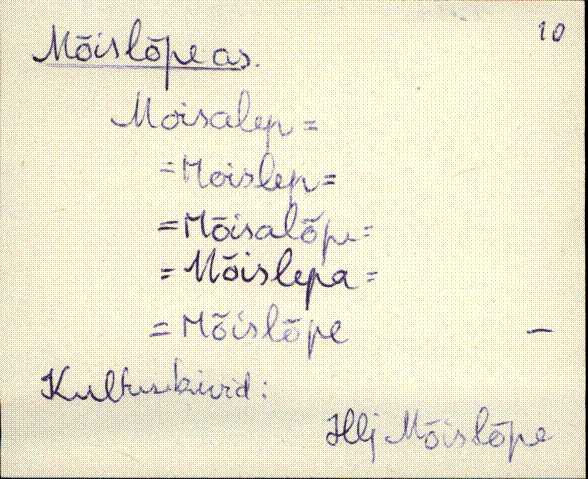 10
Mõislõpe as.
Moisalep =
= Moislep =
= Mõisalõpe =
= Mõislepa =
= Mõislõpe –
Kultusekivid :
Hlj Mõislõpe